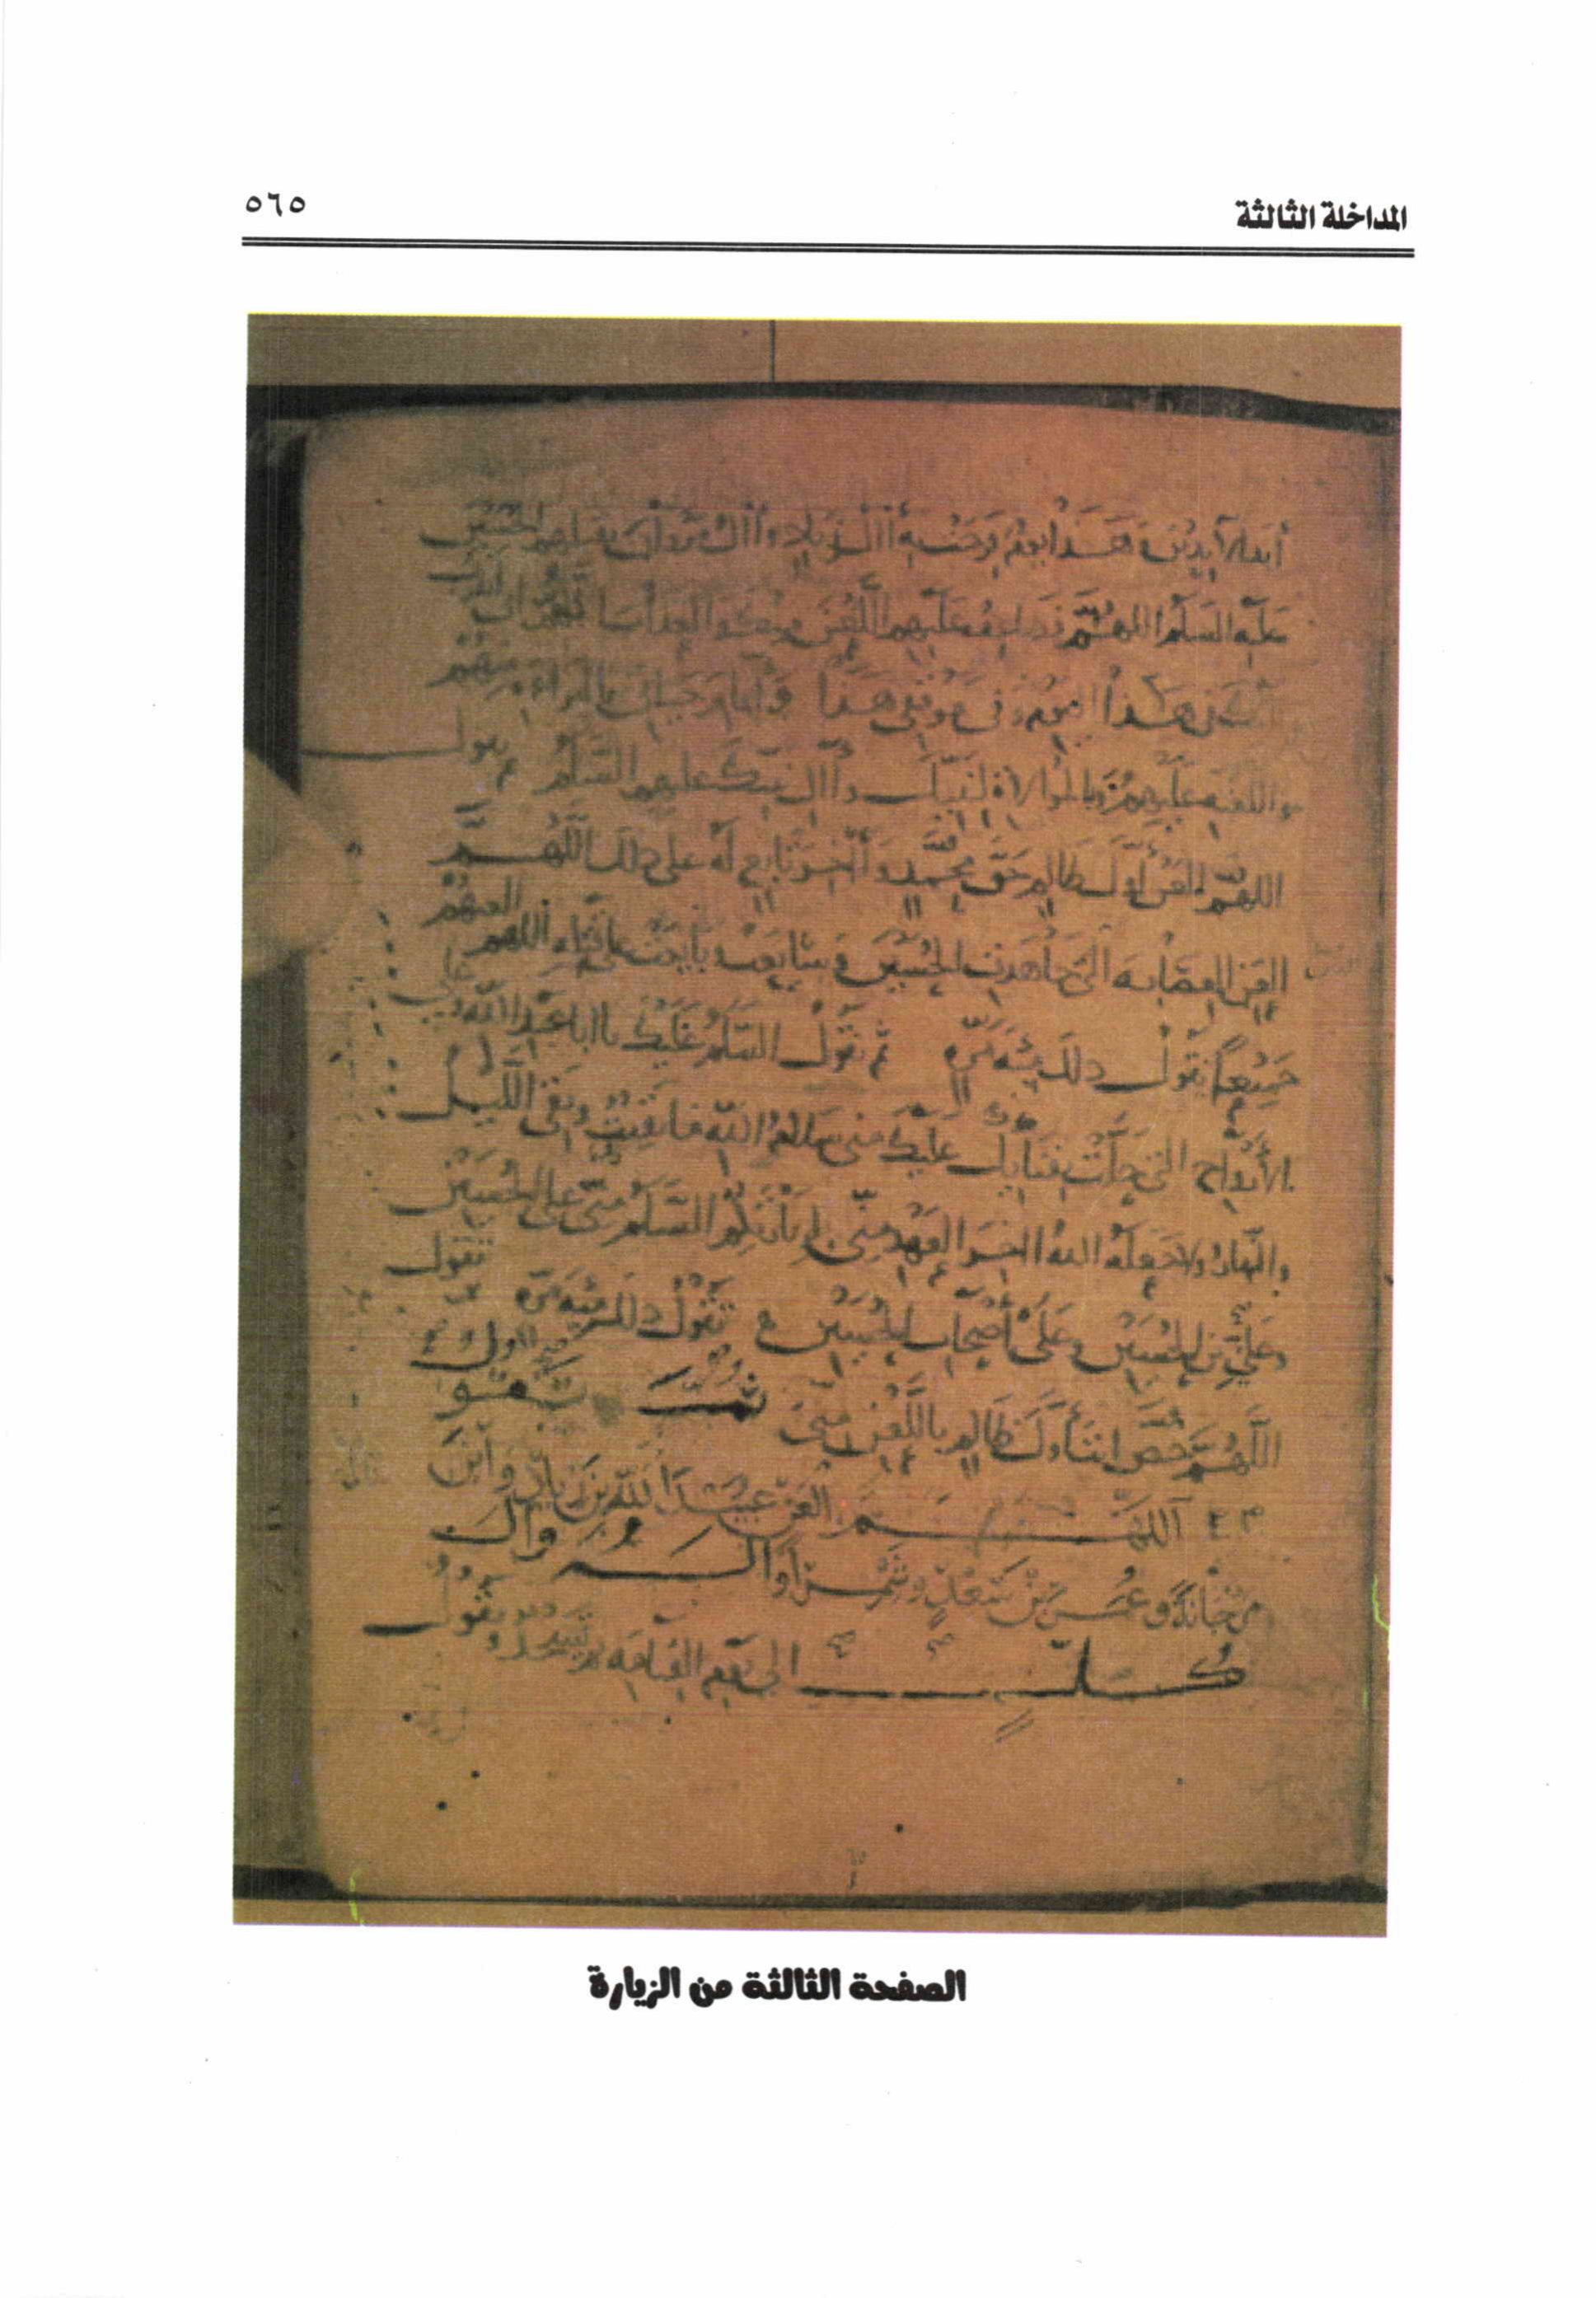 المداخلة الثالثة
٥٦٥
أبد الآبدين وهذا يوم فرحت به آل زياد وآل مروان بقتلهم الحسين
عليه السلم اللهم فضاعف عليهم اللعن منك والعذاب اللهم إني أتقرب
إليك في هذا اليوم وفي موقفي هذا وأيام حياتي بالبراءة منهم
واللعنة عليهم وبالموالاة لنبيك وآل نبيك عليهم السلم ثم يقول
اللهم العن أول ظالم حق محمد وآخر تابع له على ذلك اللهم
العن العصابة التي جاهدت الحسين وشايعت وبايعت على اللهم العنهم
جميعا تقول ذلك مئة مرة ثم تقول السلم عليك يا ابا عبد الله وعلى
الأرواح التي حلت بفنايك عليك مني سلام الله ما بقيت وبقي الليل
والنهار ولا جعله الله اخر العهد مني لزيارتكم السلم على الحسين
وعلي بن الحسين وعلى أصحاب الحسين تقول ذلك مئة مرة ثم تقول
اللهم خص انت أول ظالم باللعن مني
اللهم العن عبيد الله بن زياد وابن
مرجانة وعمر بن سعد وشمرا وآل وآل
إلى يوم القيامة ثم تسجد وتقول
الصفحة الثالثة من الزيارة